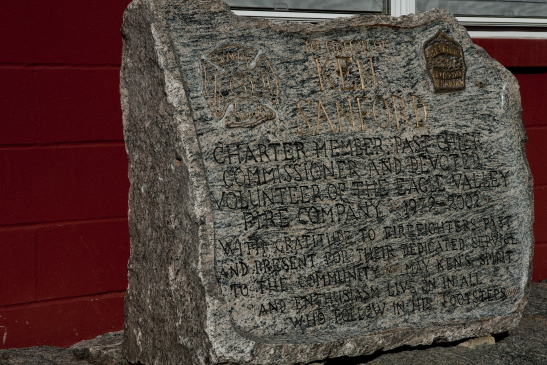 KEN
SANFORD
CHARTER MEMBER, PAST CHIEF,
COMMISSIONER AND DEVOTED
VOLUNTEER OF THE EAGLE VALLEY
FIRE COMPANY 1972-2002
WITH GRATITUDE TO FIREFIGHTERS PAST
AND PRESENT FOR THEIR DEDICATED SERVICE
TO THE COMMUNITY MAY KEN'S SPIRIT
AND ENTHUSIASM LIVE ON IN ALL
WHO FOLLOW IN HIS FOOTSTEPS